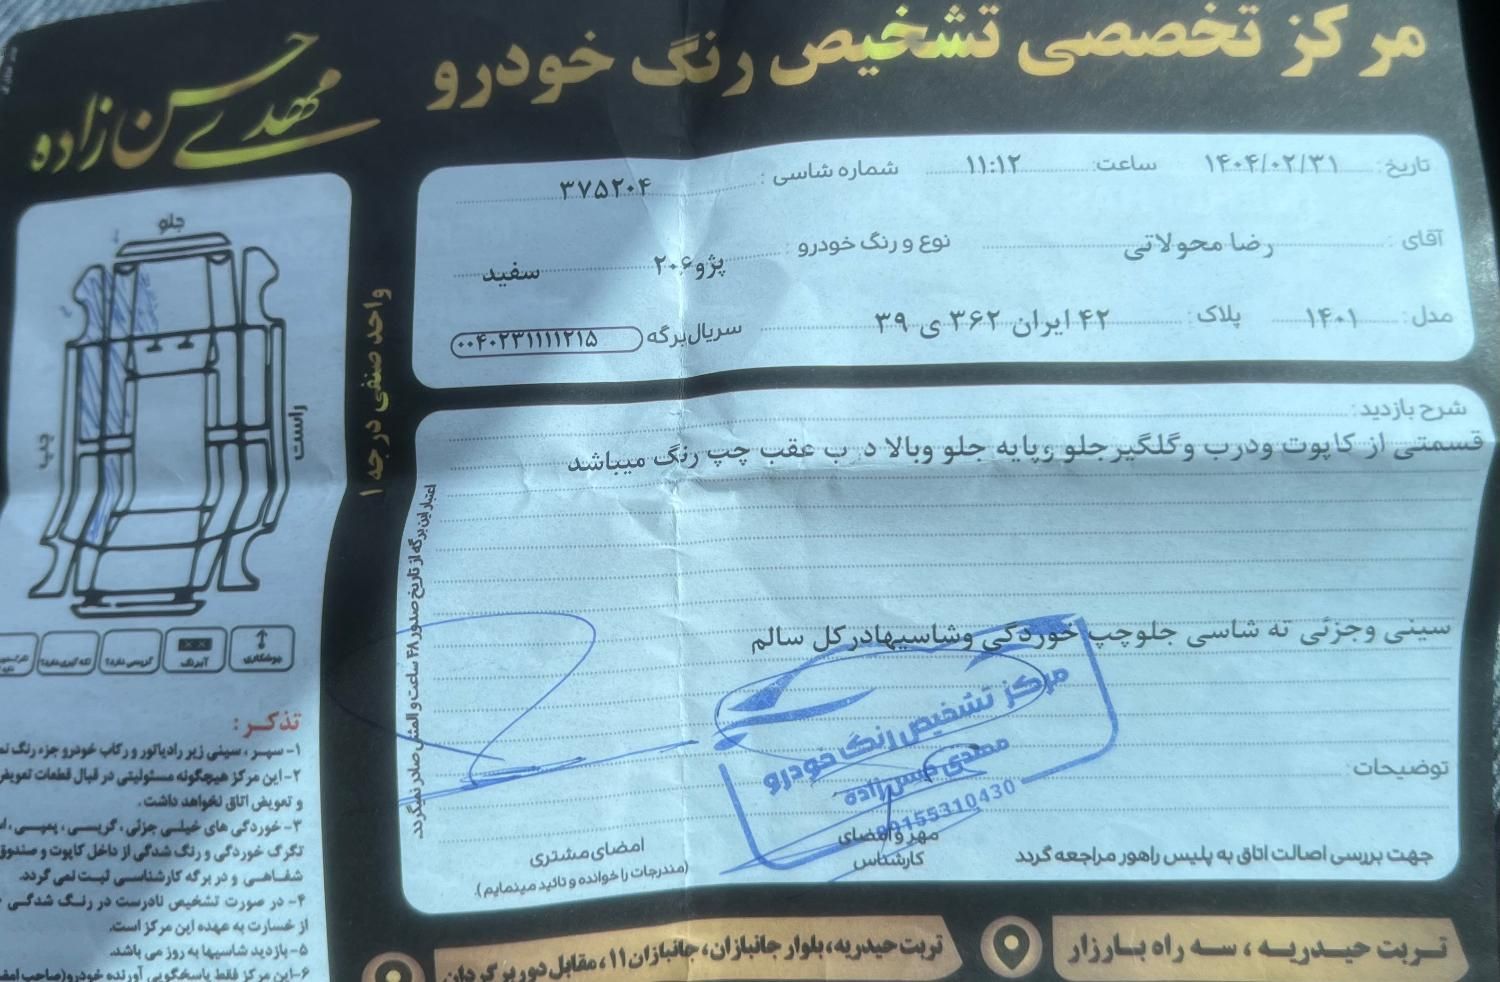 مرکز تخصصی تشخیص رنگ خودرو
مهدی حسن زاده
تاریخ: ۱۴۰۴/۰۲/۳۱ ساعت: ۱۱:۱۲ شماره شاسی: ۳۷۵۲۰۴
آقای: رضا محولاتی نوع و رنگ خودرو: پژو۲۰۶ سفید
مدل: ۱۴۰۱ پلاک: ۴۲ ایران ۳۶۲ ی ۳۹ سریال برگه ۰۰۴۰۲۳۱۱۱۱۲۱۵
شرح بازدید:
قسمتی از کاپوت ودرب وگلگیرجلو وپایه جلو وبالا د ب عقب چپ رنگ میباشد
سینی وجزئی ته شاسی جلوچپ خوردگی وشاسیهادرکل سالم
مرکز تشخیص رنگ خودرو
مهدی حسن زاده
09155310430
توضیحات:
جهت بررسی اصالت اتاق به پلیس راهور مراجعه گردد
مهر و امضای
کارشناس
امضای مشتری
(مندرجات را خوانده و تائید مینمایم).
اعتبار این برگه از تاریخ صدور ۴۸ ساعت و المثنی صادر نمیگردد
واحد صنفی درجه ۱
جلو
راست
چپ
جوشکاری
آبرنگ
گریسی دارد؟
لکه گیری دارد؟
تذکر:
۱- سپر، سینی زیر رادیاتور و رکاب خودرو جزء رنگ
۲- این مرکز هیچگونه مسئولیتی در قبال قطعات تعویض
و تعویض اتاق نخواهد داشت.
۳- خوردگی های خیلی جزئی، گریسی، پمپی،
تگرگ خوردگی و رنگ شدگی از داخل کاپوت و صندوق
شفاهی و در برگه کارشناسی ثبت نمی گردد.
۴- در صورت تشخیص نادرست در رنگ شدگی
از خسارت به عهده این مرکز است.
۵- بازدید شاسیها به روز می باشد.
۶- این مرکز فقط پاسخگویی آورنده خودرو(صاحب
تربت حیدریه، سه راه بارزار
تربت حیدریه، بلوار جانبازان، جانبازان ۱۱، مقابل دور برگردان